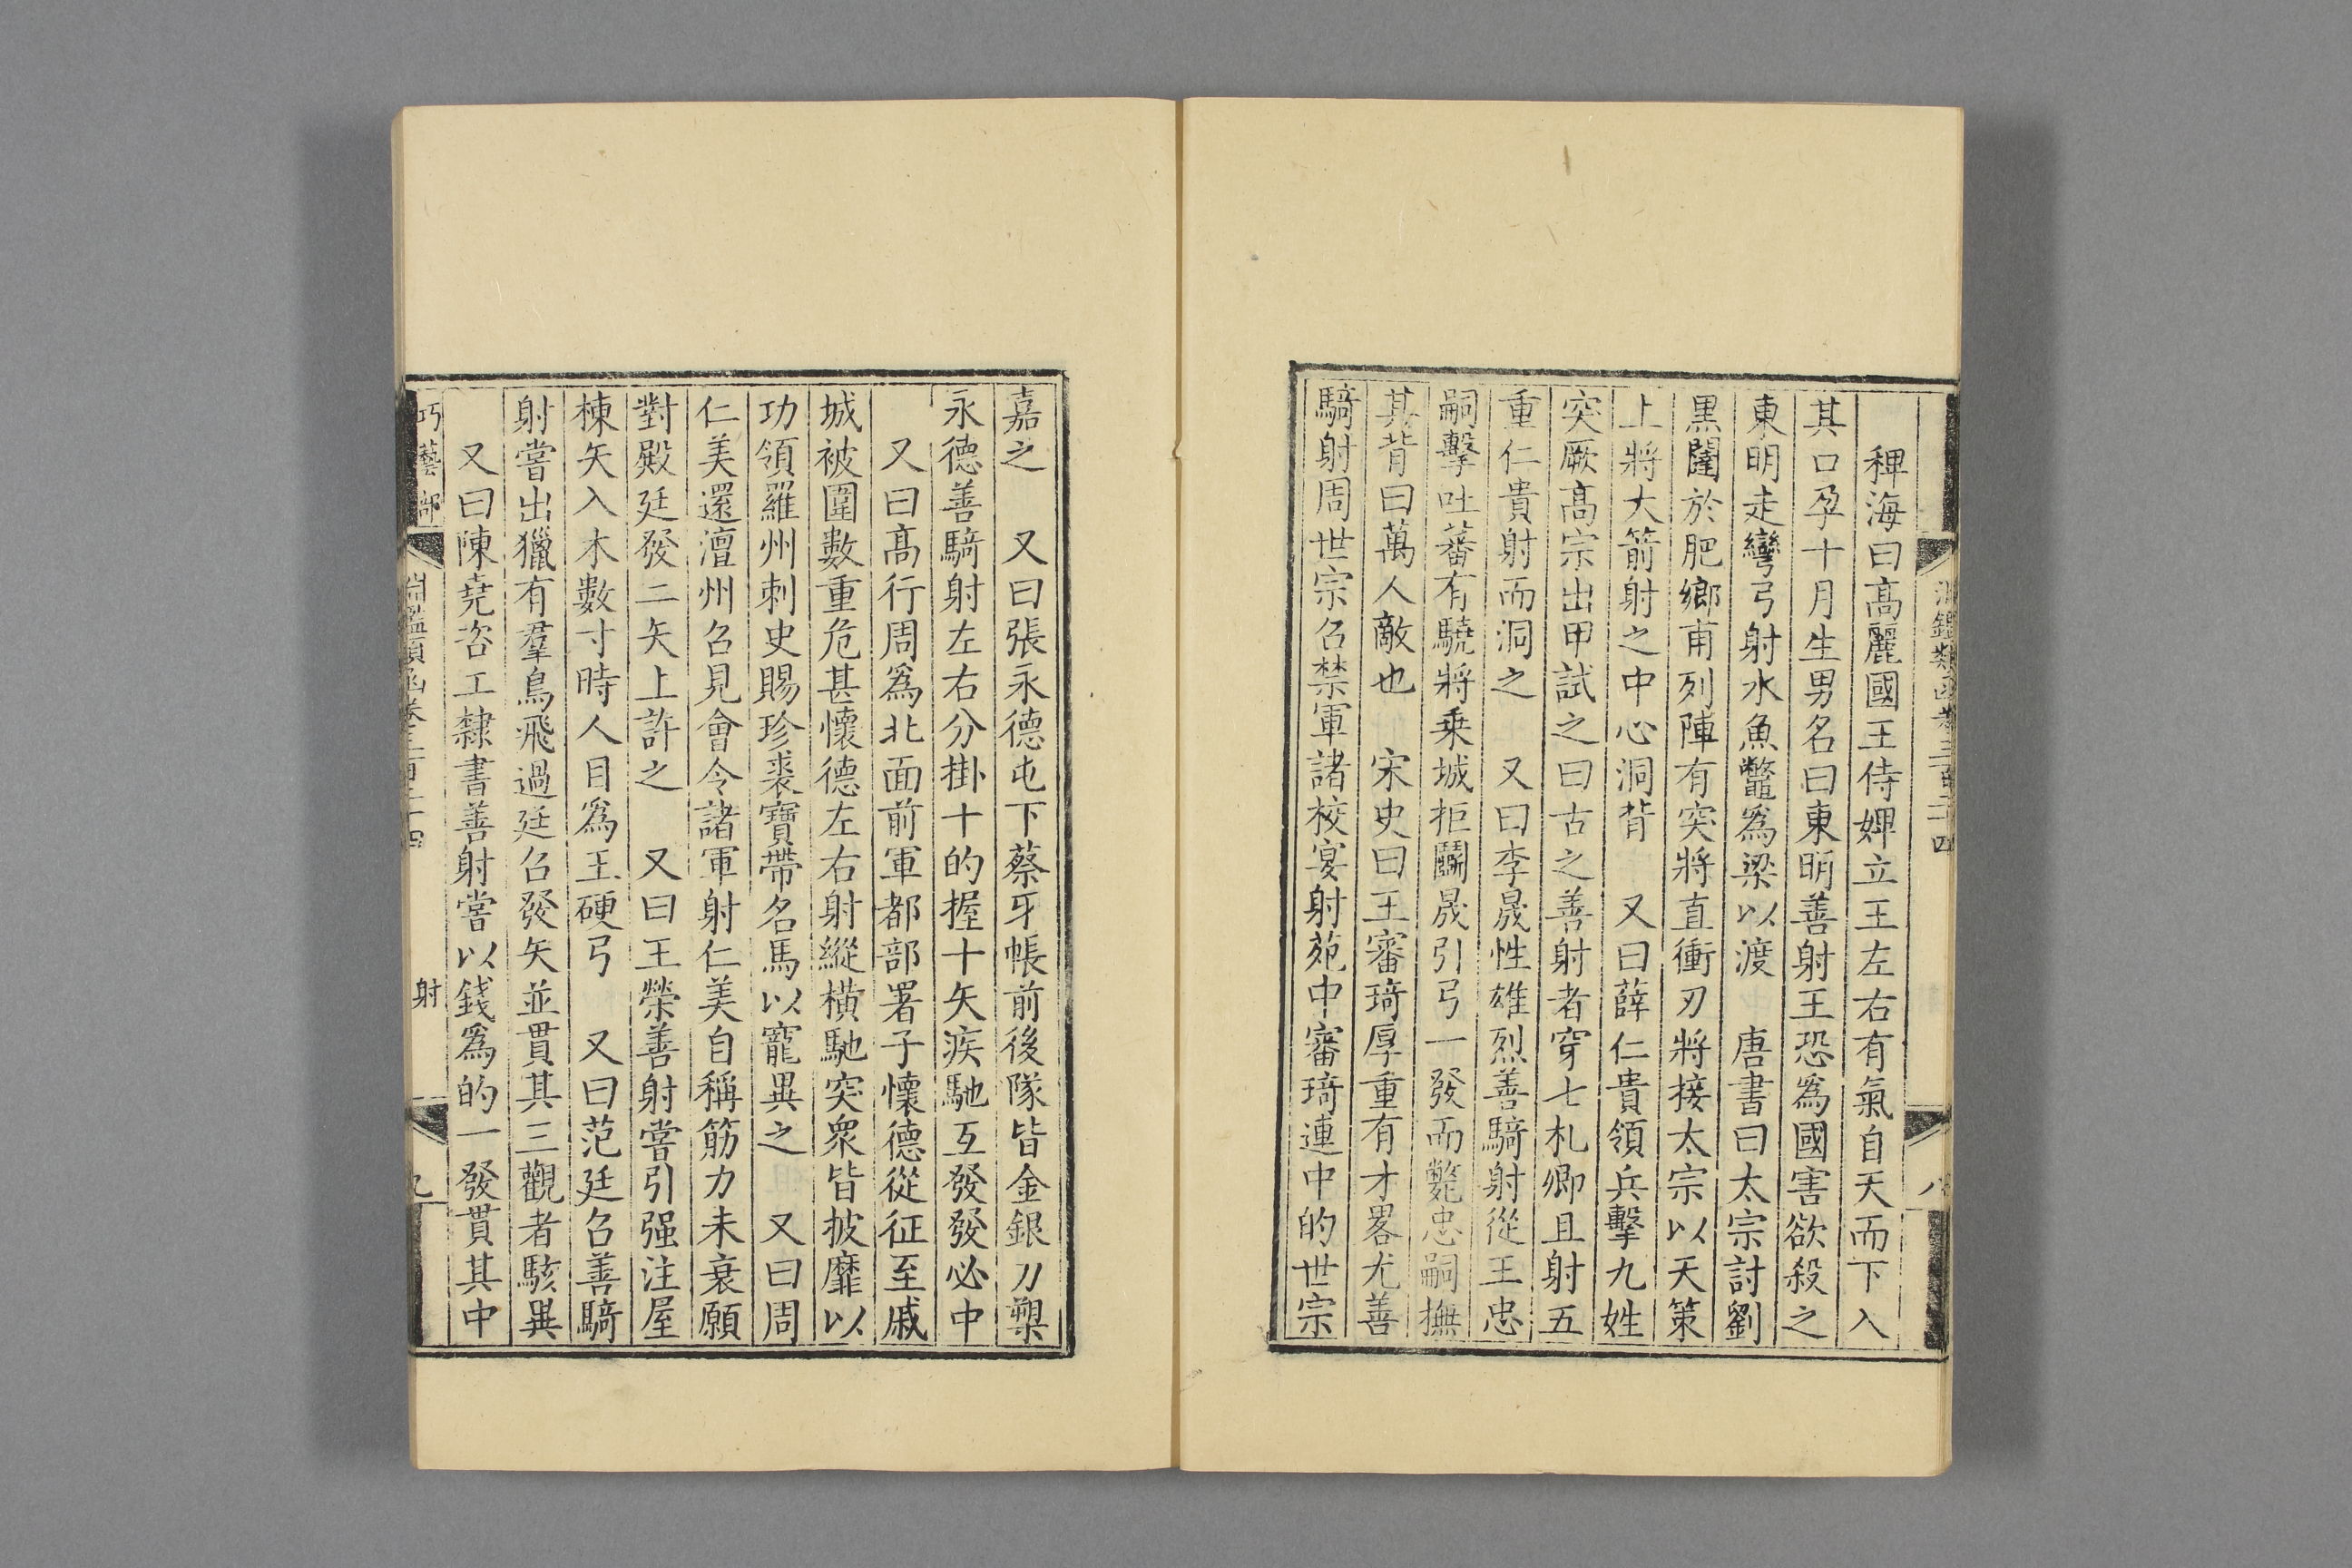 淵鑑類函卷三百二十四
八
稗海曰髙麗國王侍婢立王左右有氣自天而下入
其口孕十月生男名曰東明善射王恐爲國害欲殺之
東明走彎弓射水魚鼈爲梁以渡　唐書曰太宗討劉
黑闥於肥鄉甫列陣有突將直衝刃將接太宗以天策
上將大箭射之中心洞背　又曰薛仁貴領兵擊九姓
突厥髙宗出甲試之曰古之善射者穿七札卿且射五
重仁貴射而洞之　又曰李晟性雄烈善騎射從王忠
嗣擊吐蕃有驍將乗城拒鬭晟引弓一發而斃忠嗣撫
其背曰萬人敵也　宋史曰王審琦厚重有才畧尤善
騎射周世宗召禁軍諸校宴射苑中審琦連中的世宗
嘉之　又曰張永德屯下蔡牙帳前後隊皆金銀刀槊
永德善騎射左右分掛十的握十矢疾馳互發發必中
又曰髙行周爲北面前軍都部署子懷德從征至戚
城被圍數重危甚懷德左右射縱橫馳突衆皆披靡以
功領羅州刺史賜珍裘寶帶名馬以寵異之　又曰周
仁美還澶州召見會令諸軍射仁美自稱筋力未衰願
對殿廷發二矢上許之　又曰王榮善射嘗引强注屋
棟矢入木數寸時人目爲王硬弓　又曰范廷召善騎
射嘗出獵有羣鳥飛過廷召發矢並貫其三觀者駭異
又曰陳堯咨工隸書善射嘗以錢爲的一發貫其中
巧藝部
淵鑑類函卷三百二十四
射
九